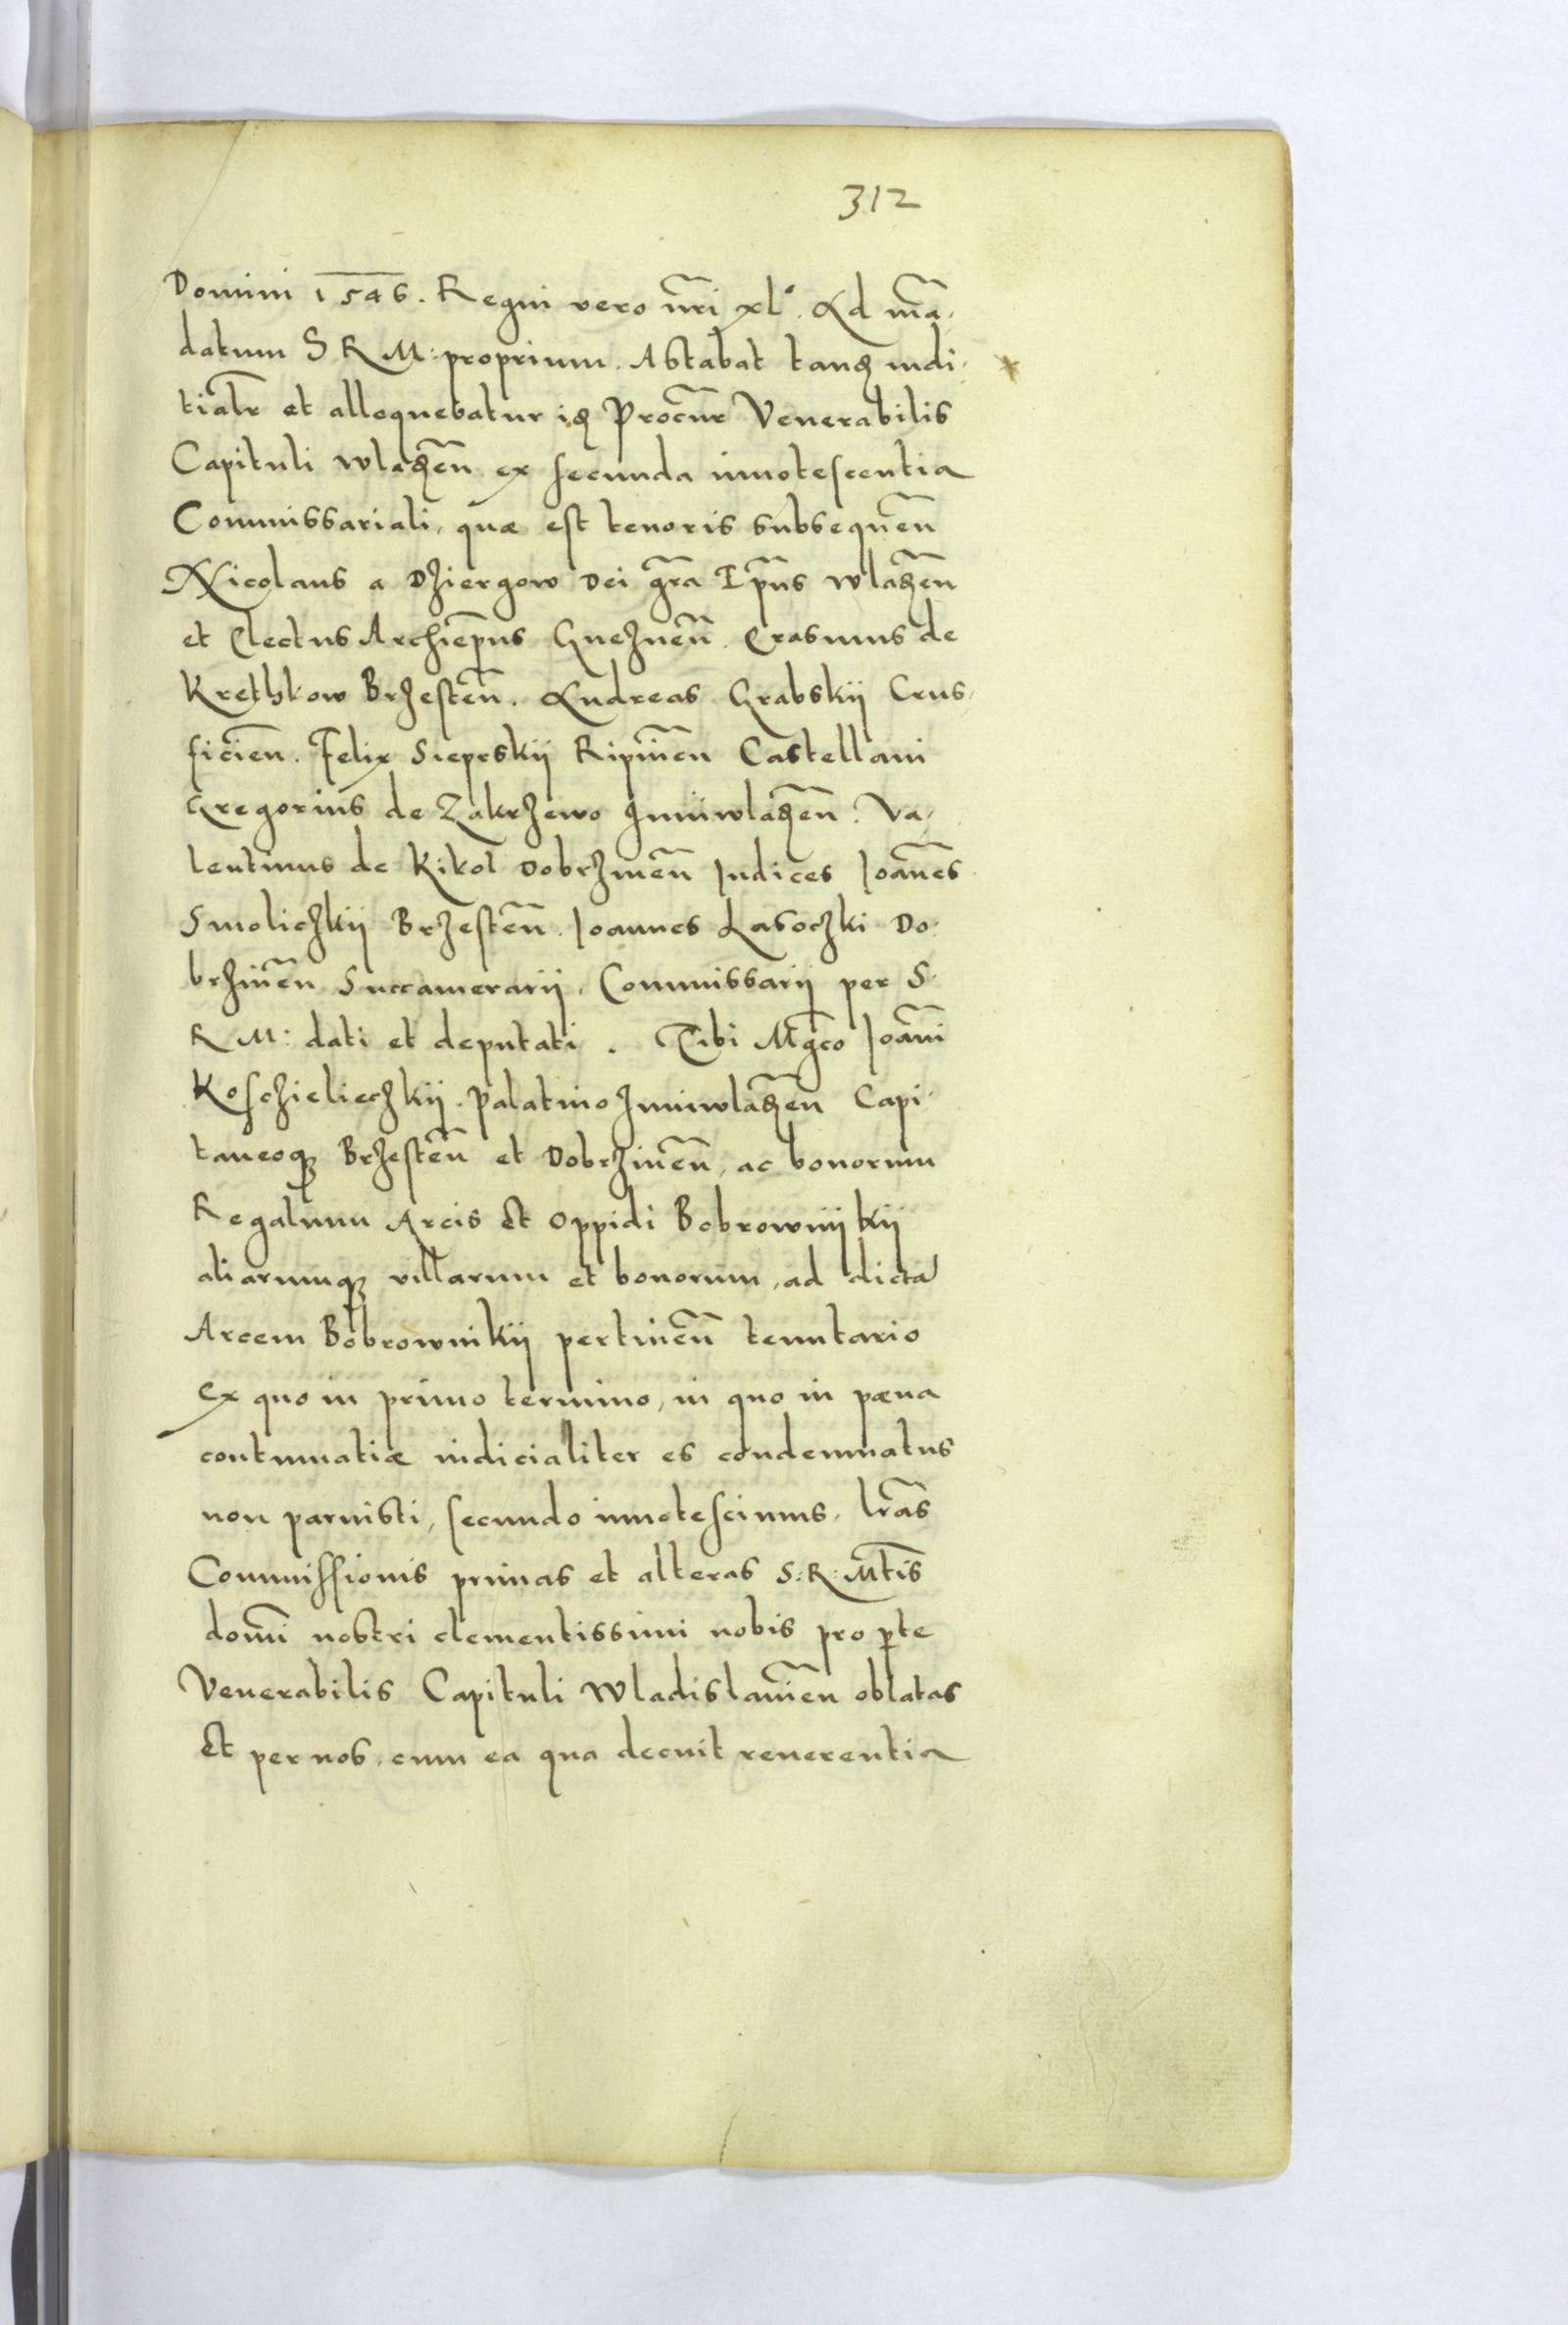 312
Domini 1546. Regni vero nr̃i xl°. Ad mã-
datum S R M: proprium. Astabat tanq̃ iudi-
tialr̃ et alloquebatur iq̃ Procur̃ Venerabilis
Capituli Wladeñ ex secunda innotescentia
Commissariali, quæ est tenoris subsequeñ
Nicolaus a Dziergow Dei gr̃a Ep̃us Wladeñ
et Electus Archiep̃us Gnezneñ. Erasmus de
Krethkow Brzesteñ. Andreas Grabskij Crus-
ficieñ. Felix Sieprskij Ripineñ Castellani
Gregorius de Zakrzewo Juniwladeñ. Va-
lentinus de Kikol Dobrzineñ Iudices Ioãnes
Smoliczkij Brzesteñ. Ioannes Lasoczki Do-
brzineñ Succamerarij, Commissarij per S.
R M: dati et deputati. Tibi Mg̃co Ioãni
Kosczieleczkij. Palatino Juniwladeñ Capi-
taneoq; Brzesteñ et Dobrzineñ, ac bonorum
Regalium Arcis Et Oppidi Bobrownijkij
aliarumq; villarum et bonorum, ad dictã
Arcem Bobrownikij pertineñ tenutario
Ex quo in primo termino, in quo in pæna
contumatiæ iudicialiter es condemnatus
non paruisti, secundo innotescimus, lr̃as
Commissionis primas et alteras S: R: Mt̃is
domĩ nostri clementissimi nobis pro p̃te
Venerabilis Capituli Wladislauieñ oblatas
Et per nos, cum ea qua decuit reuerentia